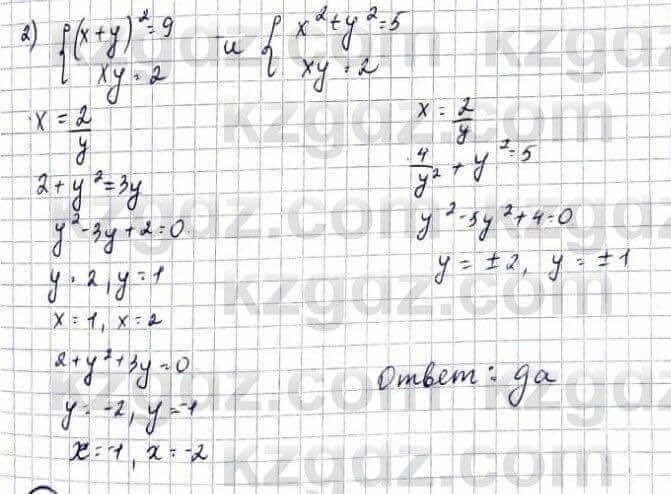 2) { (x+y)²=9 и { x²+y²=5
xy=2 xy=2
x = 2/y
2+y²=3y
y²-3y+2=0
y=2, y=1
x=1, x=2
2+y²+3y=0
y=-2, y=-1
x=-1, x=-2
x = 2/y
4/y² + y²=5
y²-5y²+4=0
y = ±2, y = ±1
Ответ: да
kzgdz.com